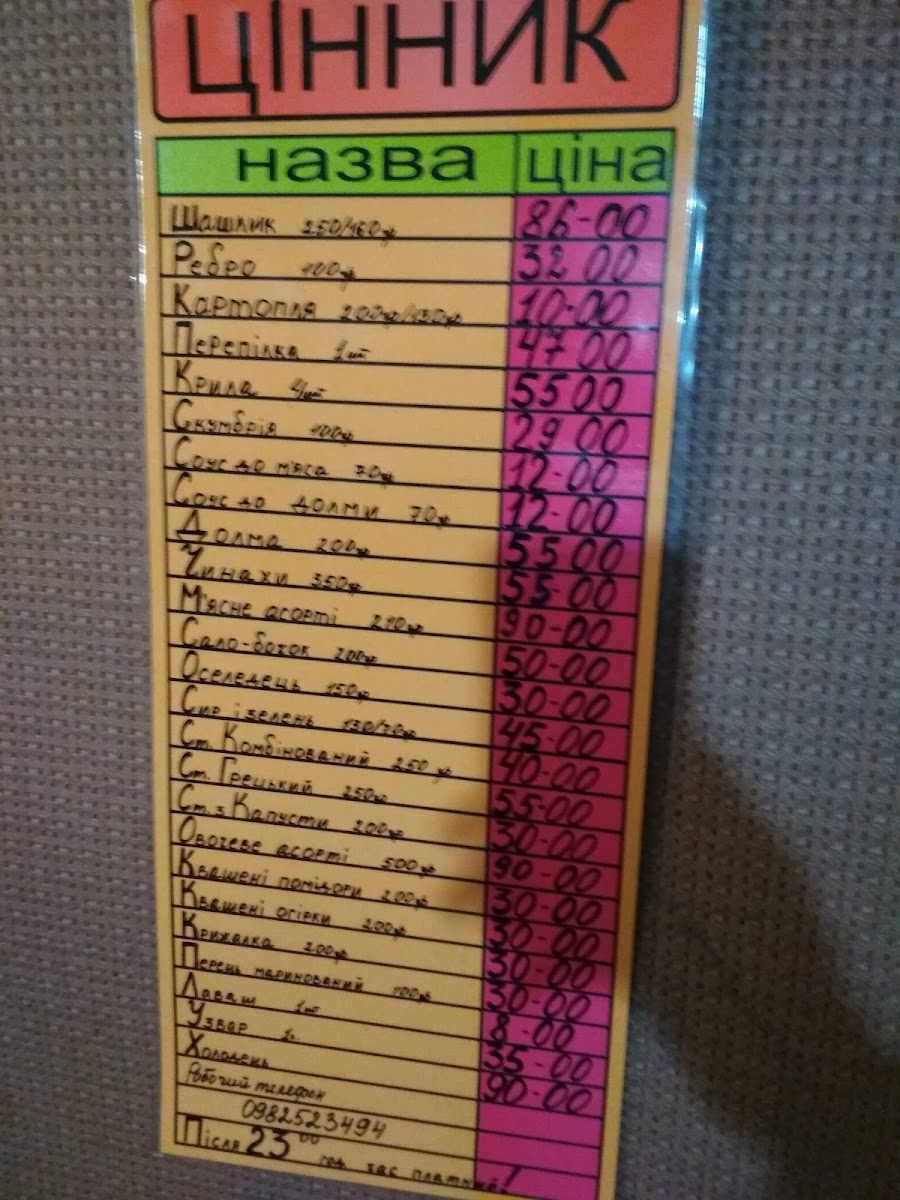 ЦІННИК
назва ціна
Шашлик 250/160гр 86-00
Ребро 100гр 32 00
Картопля 200гр/150гр 10-00
Перепілка 1шт 47 00
Крила 4шт 55 00
Скумбрія 100гр 29 00
Соус до м'яса 70гр 12-00
Соус до долми 70гр 12-00
Долма 200гр 55 00
Чинахи 350гр 55-00
М'ясне асорті 210гр 90-00
Сало-бочок 200гр 50-00
Оселедець 150гр 30-00
Сир і зелень 150/70гр 45-00
Ст. Комбінований 250гр 40-00
Ст. Грецький 250гр 55-00
Ст. з Капусти 200гр 30-00
Овочеве асорті 500гр 90-00
Квашені помідори 200гр 30-00
Квашені огірки 200гр 30-00
Крижалка 200гр 30-00
Перець маринований 100гр 30-00
Лаваш 1шт 8-00
Узвар 1л. 35-00
Холодець 90-00
Робочий телефон
0982523494
Після 23 00 год час платний!